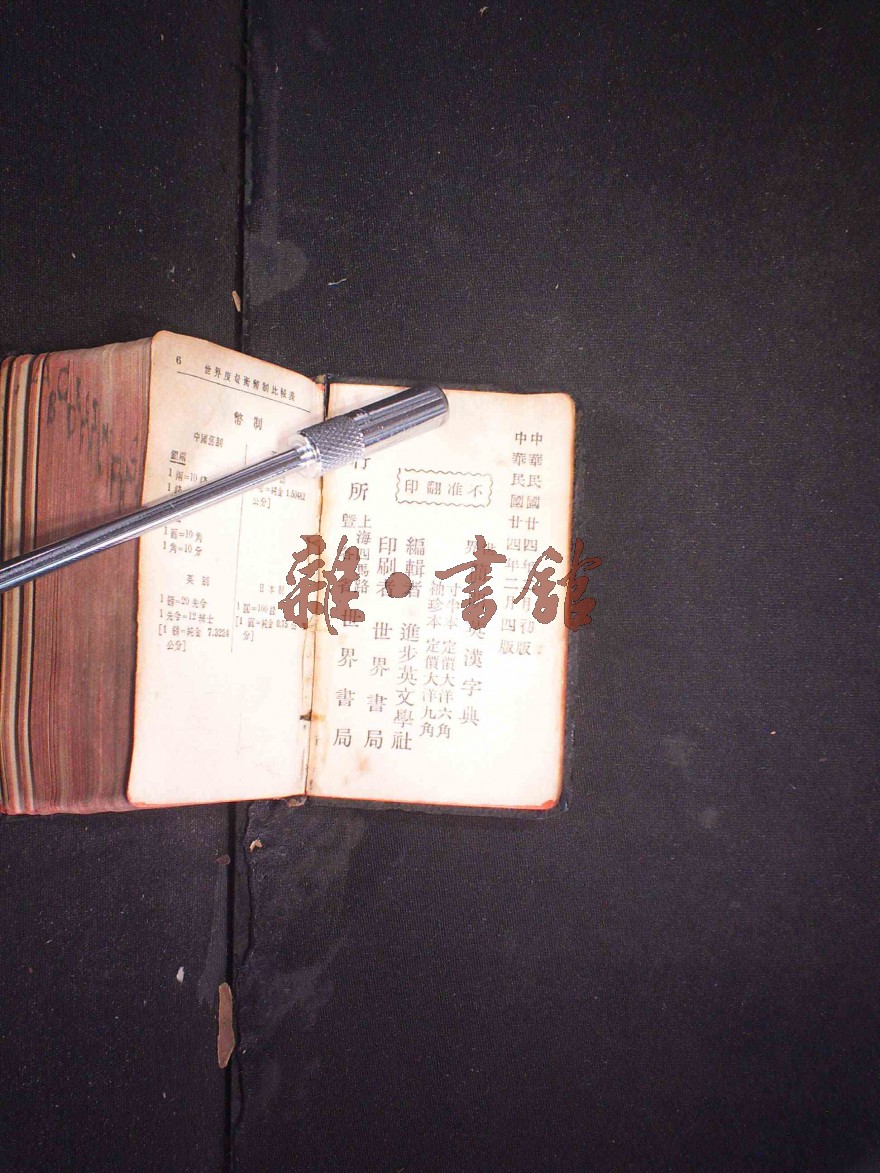 6
世界度量衡幣制比較表
幣制
中國舊制
銀兩
1 兩=10 錢
1 圓=10 角
1 角=10 分
公分]
英制
1 鎊=20 先令
1 先令=12 辨士
[1 鎊=純金 7.3224
公分]
日本制
1 圓=100 錢
[1 圓=純金 0.75 公
分]
中華民國廿四年 月初版
中華民國廿四年二月四版
不准翻印
英漢字典
寸半本 定價大洋六角
袖珍本 定價大洋九角
編輯者 進步英文學社
印刷者 世界書局
行所
上海四馬路
暨各省
世界書局
雜·書館